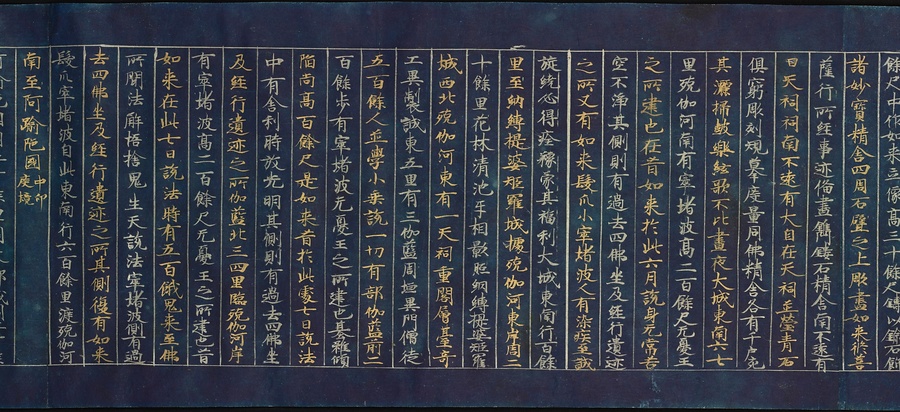 餘尺中作如來立像高三十餘尺鑄以鍮石飾
諸妙寶精舍四周石壁之上彫畫如來修菩
薩行所經事迹俻盡鐫鏤石精舍南不遠有
日天祠祠南不遠有大自在天祠並瑩青石
俱窮彫刻規摹度量同佛精舍各有千戶充
其灑掃皷樂絃歌不比晝夜大城東南六七
里殑伽河南有窣堵波高二百餘尺无憂王
之所建也在昔如來於此六月說身无常苦
空不淨其側則有過去四佛坐及經行遺迹
之所又有如來髮爪小窣堵波人有染疾至誠
旋繞必得痊蒙其福利大城東南行百餘
里至納縛提婆矩羅城據殑伽河東岸周二
十餘里花林清池乎相影照納縛提婆矩羅
城西北殑伽河東有一天祠重閣層臺奇
工異製誠東五里有三伽藍周垣異門僧徒
五百餘人並學小乘說一切有部伽藍前二
百餘步有窣堵波无憂王之所建也基雖傾
陷尚高百餘尺是如來昔於此處七日說法
中有舍利時放光明其側則有過去四佛坐
及經行遺迹之所伽藍北三四里臨殑伽河岸
有窣堵波高二百餘尺无憂王之所建也昔
如來在此七日說法時有五百餓鬼來至佛
所聞法解悟捨鬼生天說法窣堵波側有過
去四佛坐及經行遺迹之所其側復有如來
髮爪窣堵波自此東南行六百餘里渡殑伽河
南至阿踰陀國中印度境